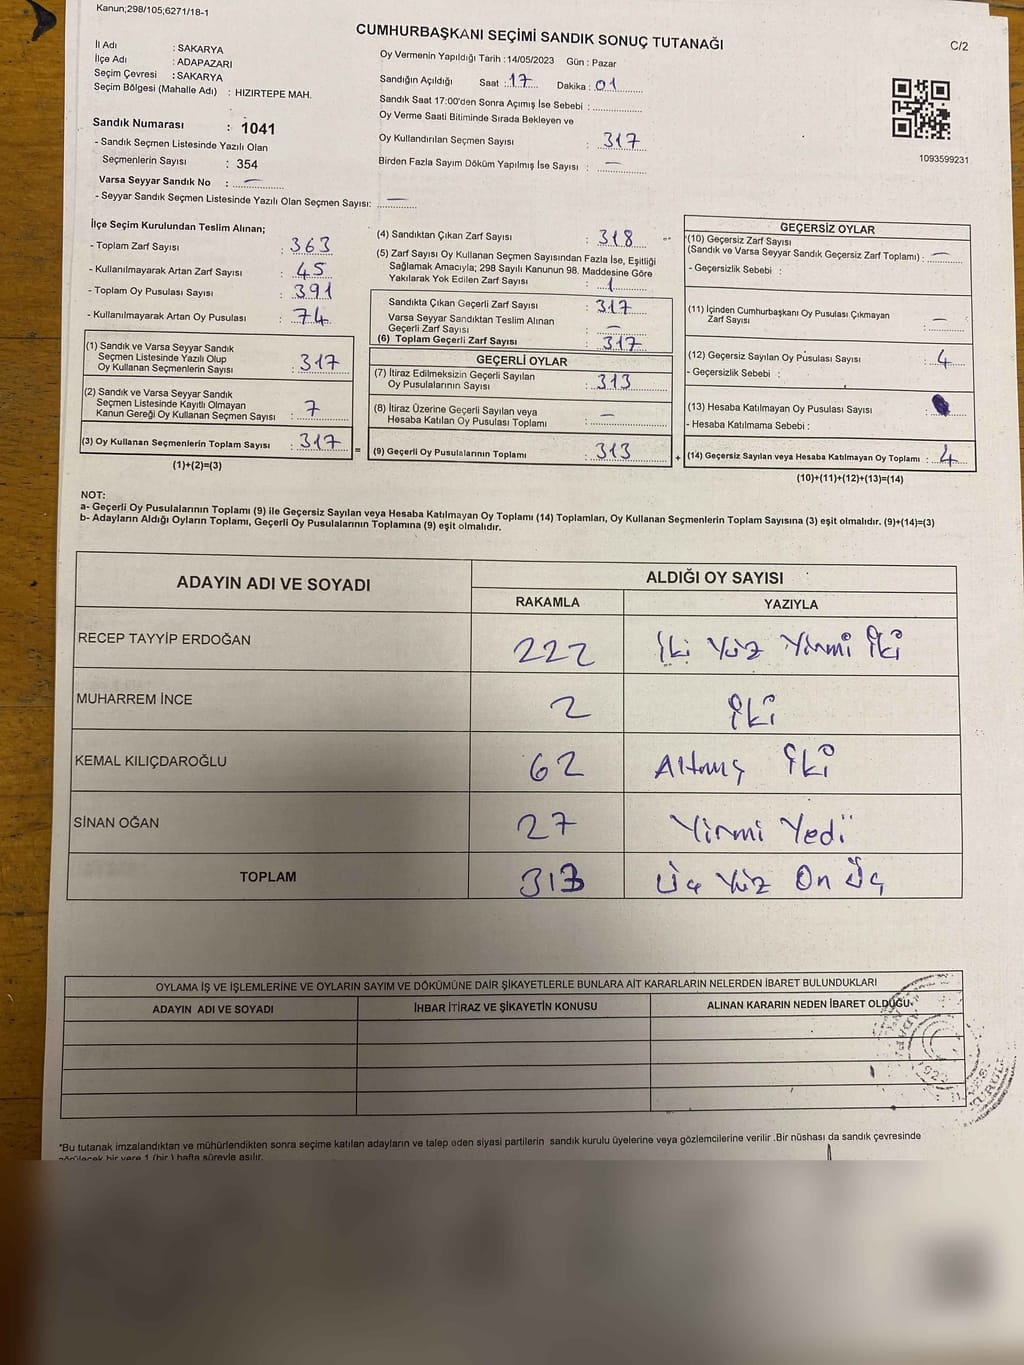 Kanun;298/105;6271/18-1
CUMHURBAŞKANI SEÇİMİ SANDIK SONUÇ TUTANAĞI
C/2
İl Adı : SAKARYA
İlçe Adı : ADAPAZARI
Seçim Çevresi : SAKARYA
Seçim Bölgesi (Mahalle Adı) : HIZIRTEPE MAH.
Sandık Numarası : 1041
- Sandık Seçmen Listesinde Yazılı Olan
Seçmenlerin Sayısı : 354
Varsa Seyyar Sandık No : —
- Seyyar Sandık Seçmen Listesinde Yazılı Olan Seçmen Sayısı: —
Oy Vermenin Yapıldığı Tarih :14/05/2023 Gün : Pazar
Sandığın Açıldığı Saat : 17 Dakika : 01
Sandık Saat 17:00'den Sonra Açımış İse Sebebi :
Oy Verme Saati Bitiminde Sırada Bekleyen ve
Oy Kullandırılan Seçmen Sayısı : 317
Birden Fazla Sayım Döküm Yapılmış İse Sayısı : —
1093599231
İlçe Seçim Kurulundan Teslim Alınan;
- Toplam Zarf Sayısı : 363
- Kullanılmayarak Artan Zarf Sayısı : 45
- Toplam Oy Pusulası Sayısı : 391
- Kullanılmayarak Artan Oy Pusulası : 74
(1) Sandık ve Varsa Seyyar Sandık
Seçmen Listesinde Yazılı Olup
Oy Kullanan Seçmenlerin Sayısı : 317
(2) Sandık ve Varsa Seyyar Sandık
Seçmen Listesinde Kayıtlı Olmayan
Kanun Gereği Oy Kullanan Seçmen Sayısı :
(3) Oy Kullanan Seçmenlerin Toplam Sayısı : 317 =
(1)+(2)=(3)
(4) Sandıktan Çıkan Zarf Sayısı : 318
(5) Zarf Sayısı Oy Kullanan Seçmen Sayısından Fazla İse, Eşitliği
Sağlamak Amacıyla; 298 Sayılı Kanunun 98. Maddesine Göre
Yakılarak Yok Edilen Zarf Sayısı : 1
Sandıkta Çıkan Geçerli Zarf Sayısı : 317
Varsa Seyyar Sandıktan Teslim Alınan
Geçerli Zarf Sayısı : —
(6) Toplam Geçerli Zarf Sayısı : 317
GEÇERLİ OYLAR
(7) İtiraz Edilmeksizin Geçerli Sayılan
Oy Pusulalarının Sayısı : 313
(8) İtiraz Üzerine Geçerli Sayılan veya
Hesaba Katılan Oy Pusulası Toplamı : —
(9) Geçerli Oy Pusulalarının Toplamı : 313 +
GEÇERSİZ OYLAR
(10) Geçersiz Zarf Sayısı
(Sandık ve Varsa Seyyar Sandık Geçersiz Zarf Toplamı) : —
- Geçersizlik Sebebi :
(11) İçinden Cumhurbaşkanı Oy Pusulası Çıkmayan
Zarf Sayısı : —
(12) Geçersiz Sayılan Oy Pusulası Sayısı : 4
- Geçersizlik Sebebi :
(13) Hesaba Katılmayan Oy Pusulası Sayısı :
- Hesaba Katılmama Sebebi :
(14) Geçersiz Sayılan veya Hesaba Katılmayan Oy Toplamı : 4
(10)+(11)+(12)+(13)=(14)
NOT:
a- Geçerli Oy Pusulalarının Toplamı (9) ile Geçersiz Sayılan veya Hesaba Katılmayan Oy Toplamı (14) Toplamları, Oy Kullanan Seçmenlerin Toplam Sayısına (3) eşit olmalıdır. (9)+(14)=(3)
b- Adayların Aldığı Oyların Toplamı, Geçerli Oy Pusulalarının Toplamına (9) eşit olmalıdır.
ADAYIN ADI VE SOYADI
ALDIĞI OY SAYISI
RAKAMLA YAZIYLA
RECEP TAYYİP ERDOĞAN 222 İki Yüz Yirmi İki
MUHARREM İNCE 2 İki
KEMAL KILIÇDAROĞLU 62 Altmış İki
SİNAN OĞAN 27 Yirmi Yedi
TOPLAM 313 Üç Yüz On Üç
OYLAMA İŞ VE İŞLEMLERİNE VE OYLARIN SAYIM VE DÖKÜMÜNE DAİR ŞİKAYETLERLE BUNLARA AİT KARARLARIN NELERDEN İBARET BULUNDUKLARI
ADAYIN ADI VE SOYADI İHBAR İTİRAZ VE ŞİKAYETİN KONUSU ALINAN KARARIN NEDEN İBARET OLDUĞU
*Bu tutanak imzalandıktan ve mühürlendikten sonra seçime katılan adayların ve talep eden siyasi partilerin sandık kurulu üyelerine veya gözlemcilerine verilir .Bir nüshası da sandık çevresinde
görülecek bir yere 1 (bir ) hafta süreyle asılır.